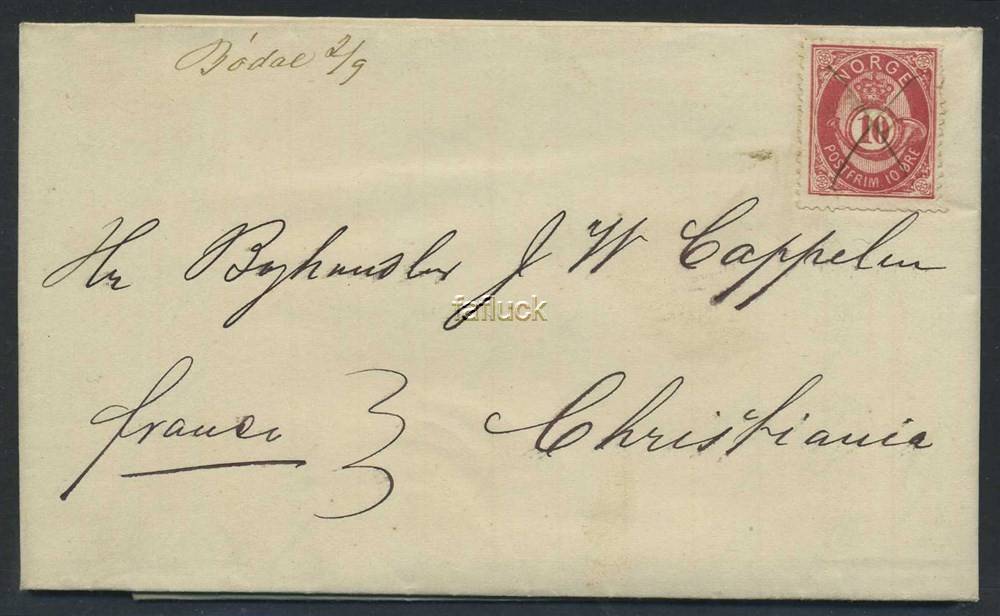 Bödal 2/9
NORGE
10
POSTFRIM 10 ØRE
Hr Boghandler J W Cappelen
fafluck
franco
Christiania